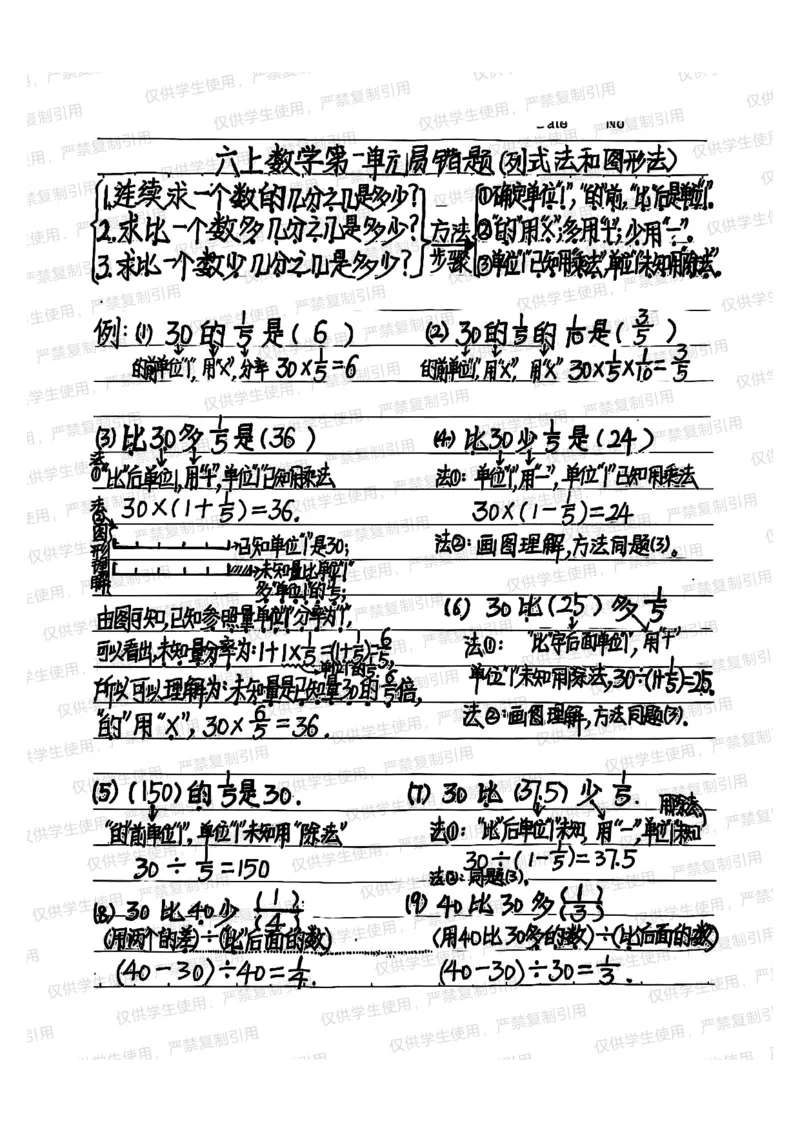 Date No
六上数学第一单元易错题(列式法和图形法)
1.连续求一个数的几分之几是多少?
2.求比一个数多几分之几是多少?
3.求比一个数少几分之几是多少?
方法
步骤
①确定单位"1","的"前,"比"后是单位"1".
②"的"用"×";多用"+";少用"-".
③单位"1"已知用乘法,单位"1"未知用除法.
例:(1) 30的1/5是( 6 )
"的"前单位"1",用"×",分率 30×1/5=6
(2) 30的1/5的1/10是( 3/5 )
"的"前单位"1",用"×",用"×" 30×1/5×1/10=3/5
(3)比30多1/5是(36)
法①"比"后单位1,用"+",单位"1"已知用乘法
30×(1+1/5)=36.
(4)比30少1/5是(24)
法①:单位"1",用"-",单位"1"已知用乘法
30×(1-1/5)=24
法②:画图理解,方法同题(3)。
法②图形理解
→已知单位"1"是30;
→未知量比单位"1"
多"单位1"的1/5;
由图可知,已知参照量单位"1"分率为"1",
可以看出,未知量分率为:1+1×1/5=(1+1/5)=6/5
单位"1"的1/5
所以可以理解为:未知量是已知量30的6/5倍,
"的"用"×",30×6/5=36.
(6) 30比(25)多1/5
法①: "比"字后面单位"1",用"+"
单位"1"未知用除法,30÷(1+1/5)=25.
法②:画图理解,方法同题(3).
(5) (150)的1/5是30.
"的"前单位"1",单位"1"未知用"除法"
30÷1/5=150
(7) 30比(37.5)少1/5.
法①:"比"后单位"1"未知,用"-",单位"1"未知
用除法
30÷(1-1/5)=37.5
法②:同题(3).
(8) 30比40少(1)/(4)
(用两个的差)÷("比"后面的数)
(40-30)÷40=1/4.
(9) 40比30多(1)/(3)
(用40比30多的数)÷(比后面的数)
(40-30)÷30=1/3.
仅供学生使用,严禁复制引用